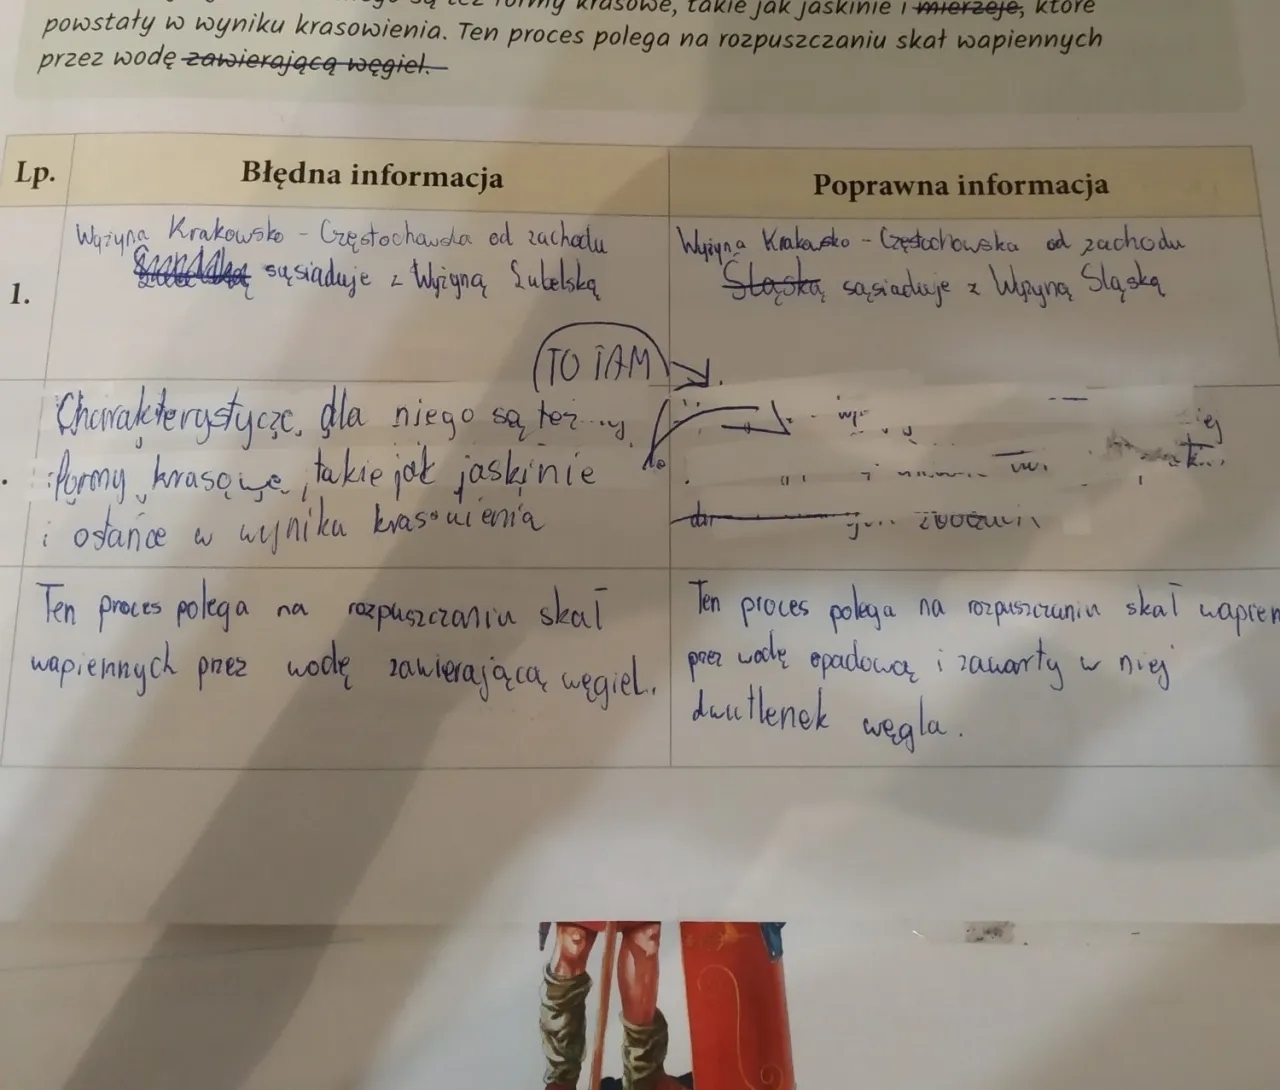 formy krasowe, takie jak jaskinie i mierzeje, które
powstały w wyniku krasowienia. Ten proces polega na rozpuszczaniu skał wapiennych
przez wodę zawierającą węgiel.
Lp.
Błędna informacja
Poprawna informacja
1.
Wyżyna Krakowsko - Częstochowska od zachodu
sąsiaduje z Wyżyną Lubelską
Wyżyna Krakowsko - Częstochowska od zachodu
Śląską sąsiaduje z Wyżyną Śląską
TO TAM
Charakterystycze, dla niego są też
formy krasowe, takie jak jaskinie
i ostańce w wyniku krasowienia
Ten proces polega na rozpuszczaniu skał
wapiennych przez wodę zawierającą węgiel.
Ten proces polega na rozpuszczaniu skał wapien
przez wodę opadową i zawarty w niej
dwutlenek węgla.